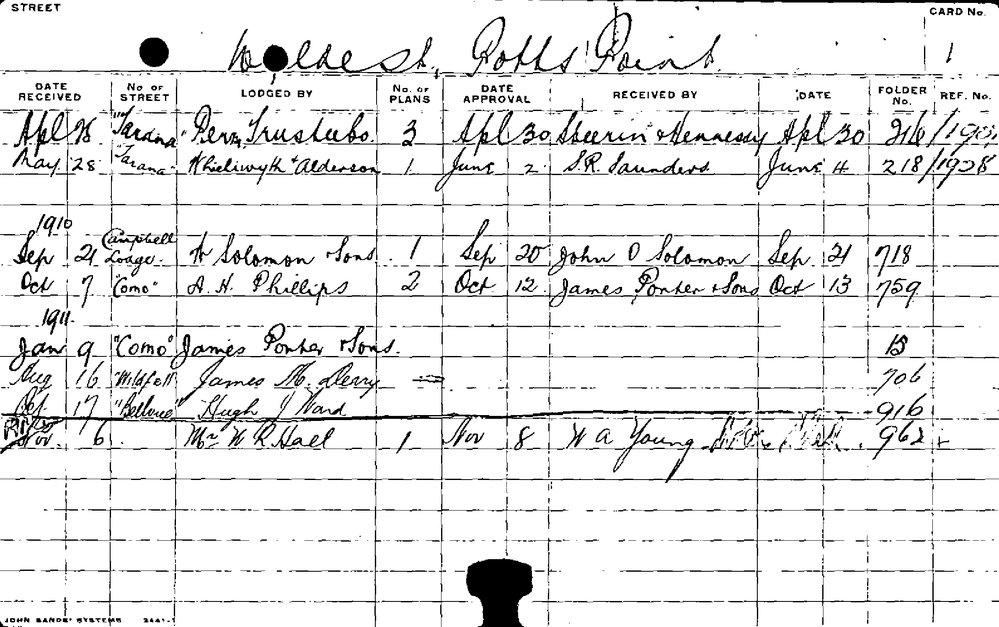 STREET CARD No.
Wylde St, Potts Point 1
DATE RECEIVED No. OF STREET LODGED BY No. OF PLANS DATE APPROVAL RECEIVED BY DATE FOLDER No. REF. No.
Apl 28 "Tarana" Perm Trustee Co. 3 Apl 30 Sheerin & Hennessy Apl 30 216/190
May 28 Tarana Whielwyth & Alderson 1 June 2 S.R. Saunders June 4 218/1908
1910
Sep 21 Campbell Lodge H Solomon & Sons 1 Sep 20 John D Solomon Sep 21 718
Oct 7 "Como" A. H. Phillips 2 Oct 12 James Porter & Sons Oct 13 759
1911
Jan 9 "Como" James Porter & Sons. 13
Aug 16 "Wildfell" James M. Derry 706
Oct. 17 "Bellvue" Hugh J Ward 916
Nov. 6 Mr W R Hall 1 Nov 8 W A Young 962
JOHN SANDS' SYSTEMS